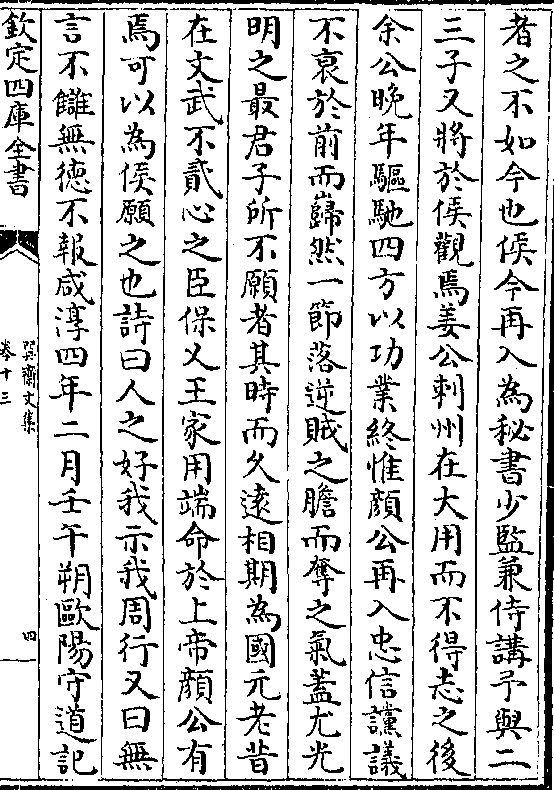 者之不如今也侯今再入為秘書少監兼侍講予與二
三子又將於侯觀焉姜公刺州在大用而不得志之後
余公晚年驅馳四方以功業終惟顔公再入忠信讜議
不衰於前而巋然一節落逆賊之膽而奪之氣蓋尤光
明之最君子所不願者其時而久遠相期為國元老昔
在文武不貳心之臣保乂王家用端命於上帝顔公有
焉可以為侯願之也詩曰人之好我示我周行又曰無
言不讎無徳不報咸淳四年二月壬午朔歐陽守道記
欽定四庫全書
巽齋文集
卷十三
四